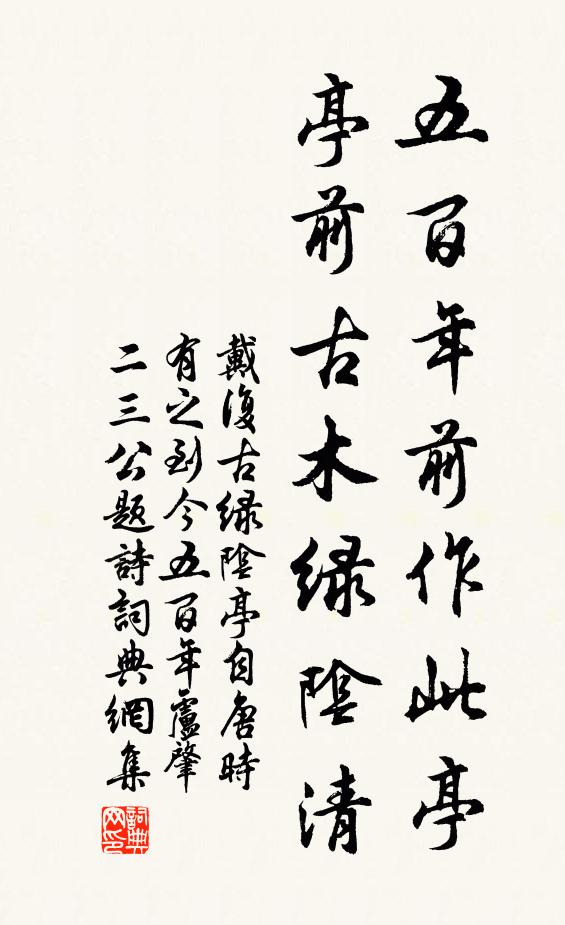 五百年前作此亭
亭前古木緑陰清
戴復古緑陰亭自唐時
有之到今五百年盧肇
二三公題詩詞典網集
詞典
网印